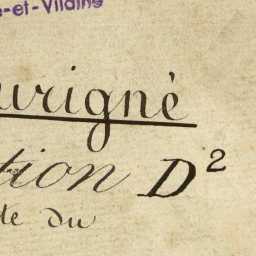 -et-Vilaine
uvrigné
tion D²
de du